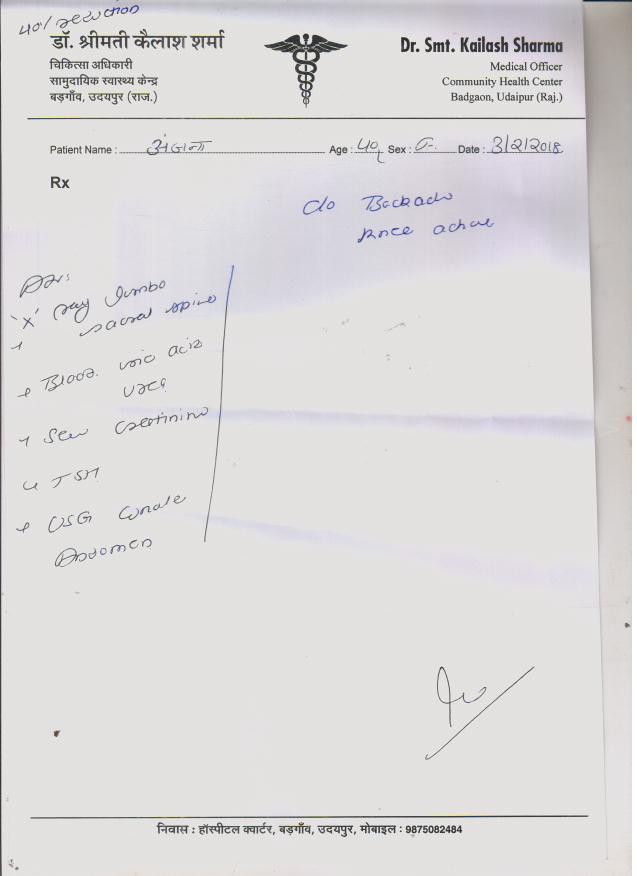 डॉ. श्रीमती कैलाश शर्मा
चिकित्सा अधिकारी
सामुदायिक स्वास्थ्य केन्द्र
बड़गाँव, उदयपुर (राज.)
Dr. Smt. Kailash Sharma
Medical Officer
Community Health Center
Badgaon, Udaipur (Raj.)
Patient Name : अंजना Age : 40 Sex : Date : 3/2/2018
Rx
c/o Backache
Knee
'X' ray lumbo
sacral spine
Blood uric acid
urea
creatinine
TSH
USG whole
Abdomen
निवास : हॉस्पीटल क्वार्टर, बड़गाँव, उदयपुर, मोबाइल : 9875082484